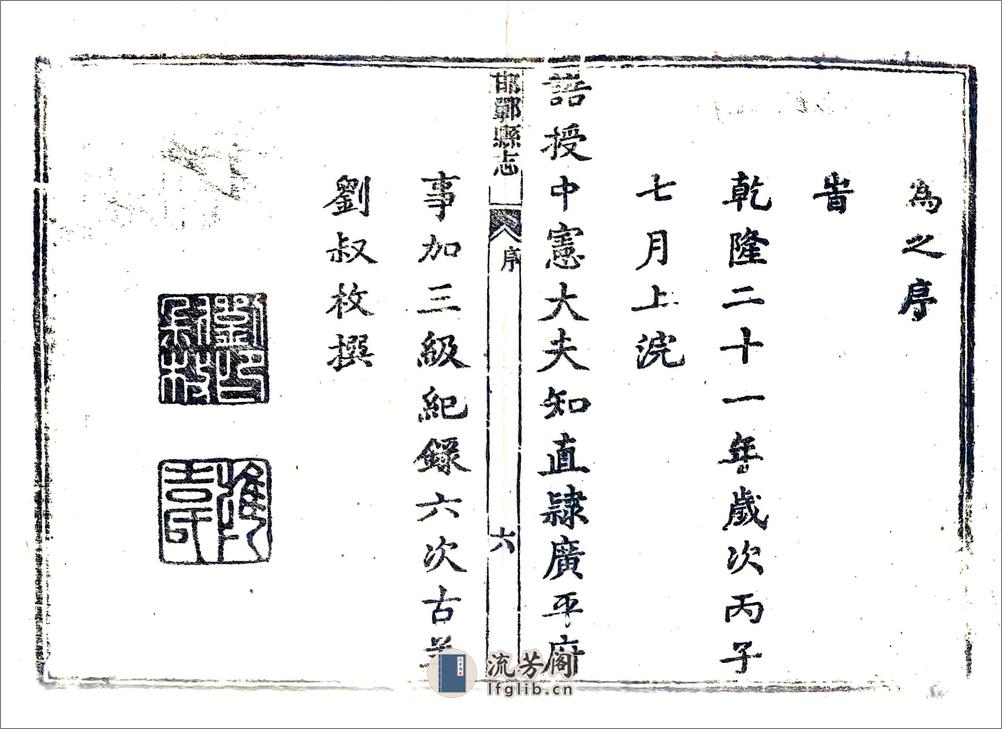 為之序
旹
乾隆二十一年歲次丙子
七月上浣
誥授中憲大夫知直隸廣平府
邯鄲縣志
序
六
事加三級紀錄六次古
劉叔枚撰
劉印叔枚
流芳阁
lfglib.cn